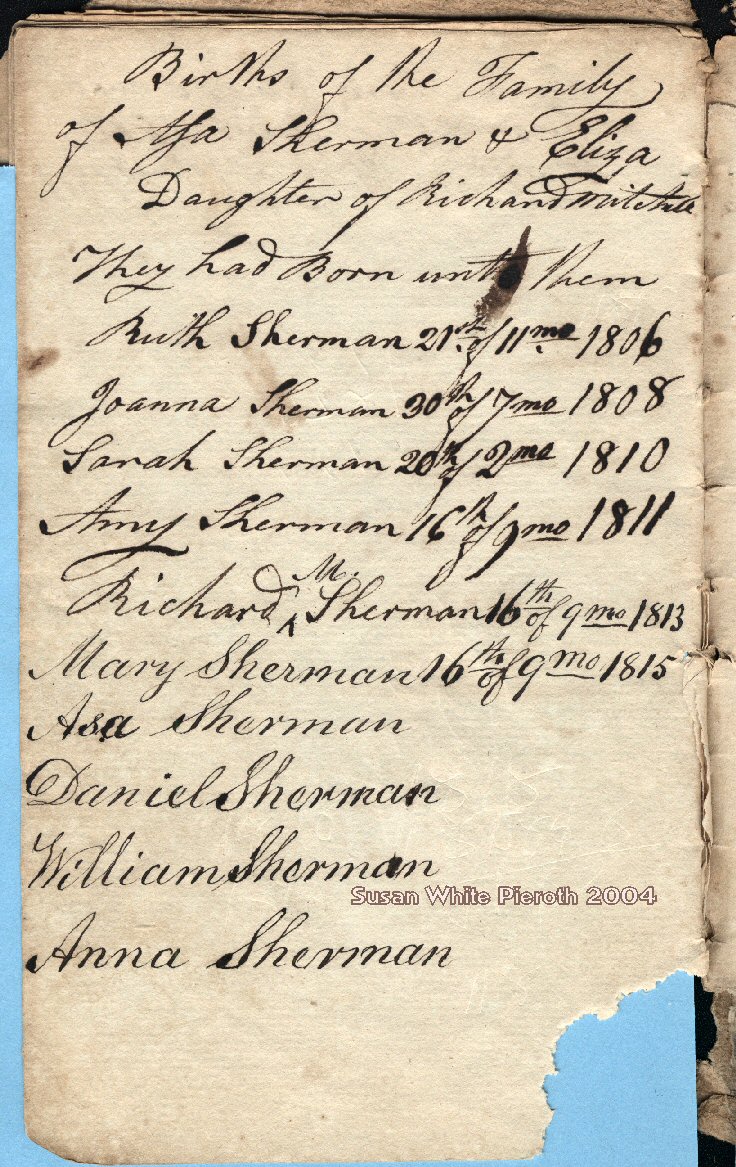 Births of the Family
of Asa Sherman & Eliza
Daughter of Richard Mitchell
They had Born unto them
Ruth Sherman 21st of 11mo 1806
Joanna Sherman 30th of 7mo 1808
Sarah Sherman 20th of 2mo 1810
Amy Sherman 16th of 9mo 1811
Richard M. Sherman 16th of 9mo 1813
Mary Sherman 16th of 9mo 1815
Asa Sherman
Daniel Sherman
William Sherman
Susan White Pieroth 2004
Anna Sherman